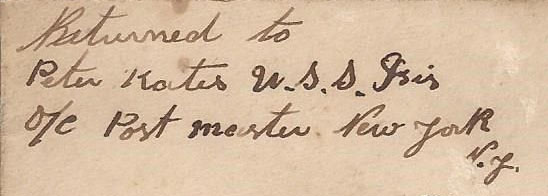 Returned to
Peter Kates U.S.S. Isis
O/C Post master New York
N.Y.